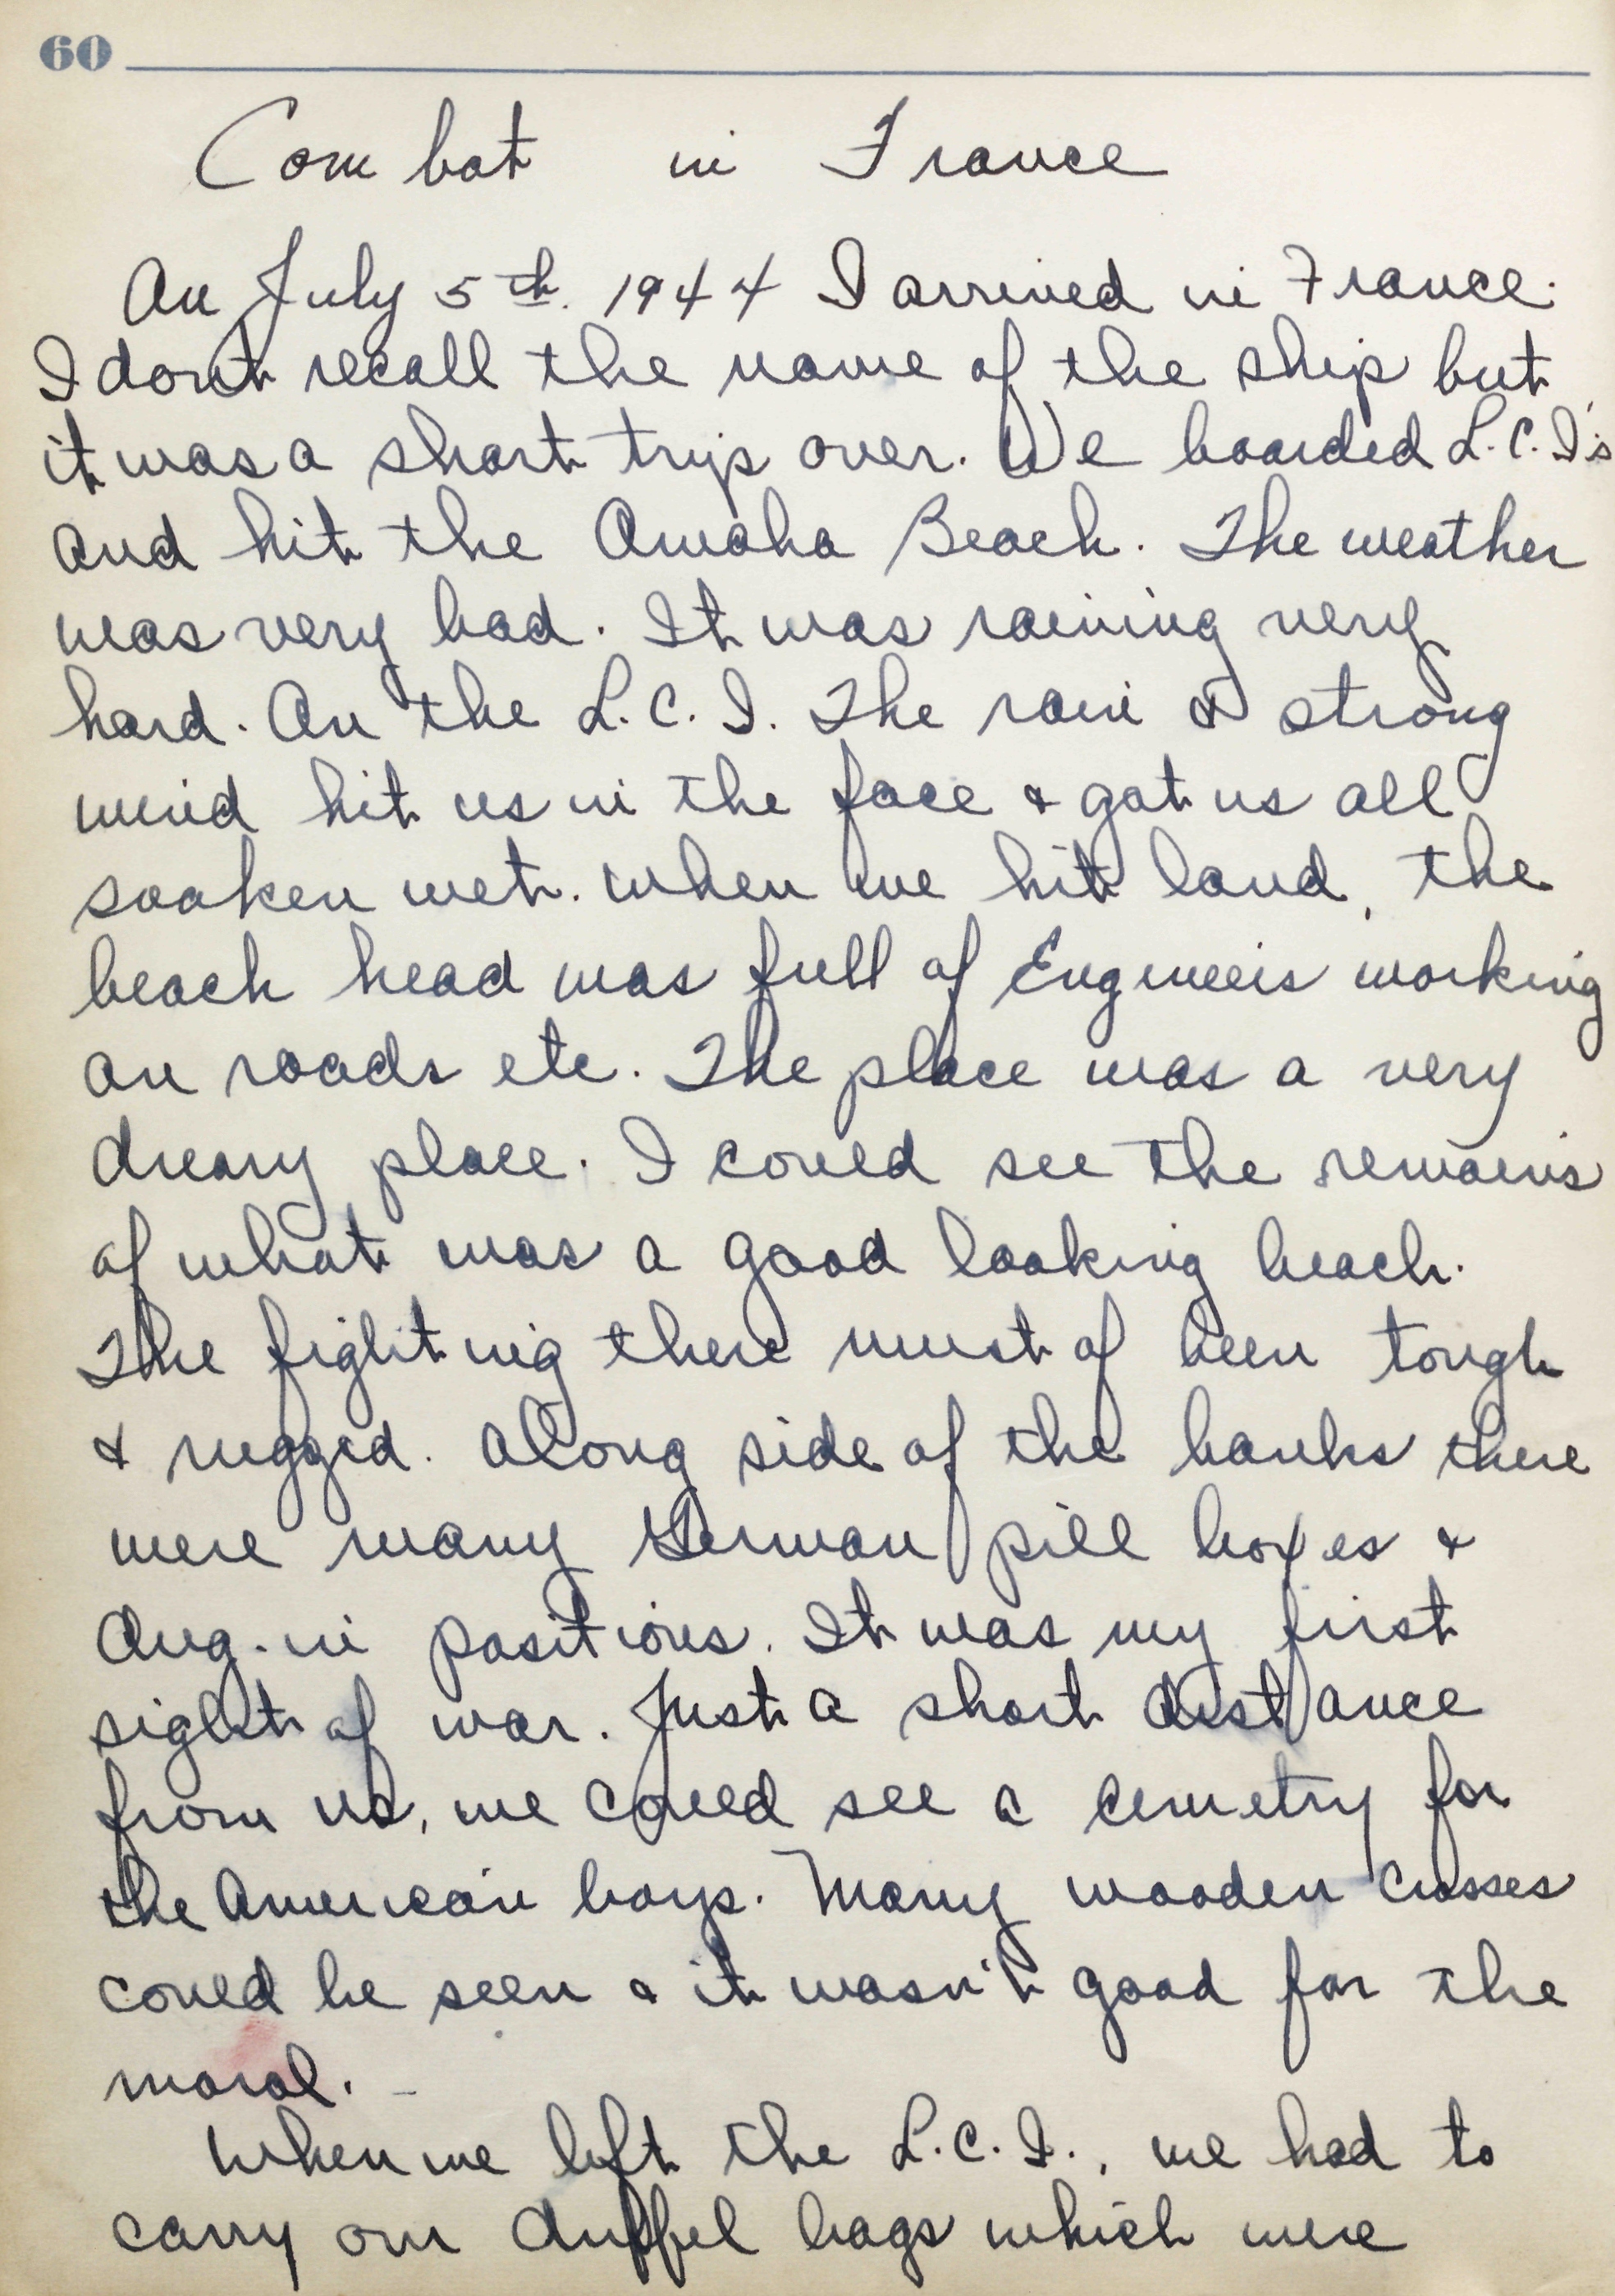 60
Combat in France
On July 5th. 1944 I arrived in France.
I don't recall the name of the ship but
it was a short trip over. We boarded L.C.I's
and hit the Omaha Beach. The weather
was very bad. It was raining very
hard. On the L.C.I. The rain & strong
wind hit us in the face & got us all
soaken wet. When we hit land, the
beach head was full of Engineers working
on roads etc. The place was a very
dreary place. I could see the remains
of what was a good looking beach.
The fighting there must of been tough
& rugged. Along side of the banks there
were many German pill boxes &
dug-in positions. It was my first
sight of war. Just a short distance
from us, we could see a cemetry for
the American boys. Many wooden crosses
could be seen & it wasn't good for the
moral.
When we left the L.C.I., we had to
carry our duffel bags which were